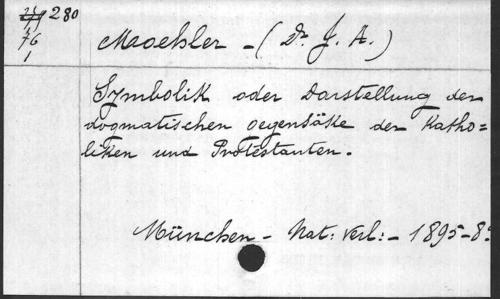 280
76
1
Moehler - (Dr. J. A.)
Symbolik oder Darstellung der
dogmatischen Gegensäke der Katho=
liken und Protestanten.
München - Nat: Verl: - 1895-8: